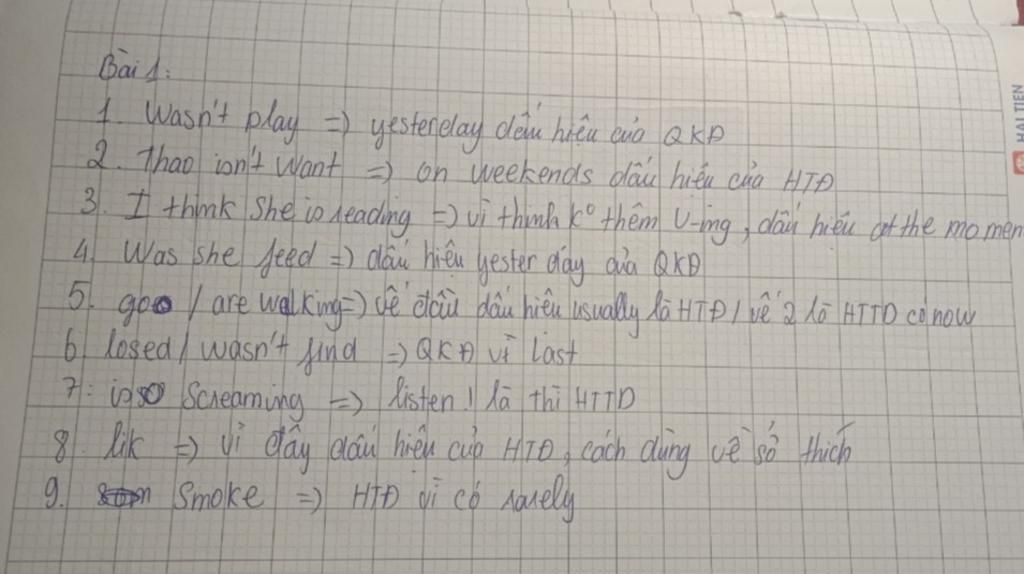 Bài 1:
1. Wasn't play => yesterday dấu hiệu của QKĐ
2. Thao isn't want => on weekends dấu hiệu của HTĐ
3. I think she is reading => vì think k° thêm V-ing, dấu hiệu at the momen
4. Was she feed => dấu hiệu yester day của QKĐ
5. go / are walking => vế đầu dấu hiệu usually là HTĐ / vế 2 là HTTD có now
6. losed / wasn't find => QKĐ vì last
7. is screaming => listen! là thì HTTD
8. lik => vì đây dấu hiệu của HTĐ, cách dùng về sở thích
9. smoke => HTĐ vì có rarely
HẢI TIẾN